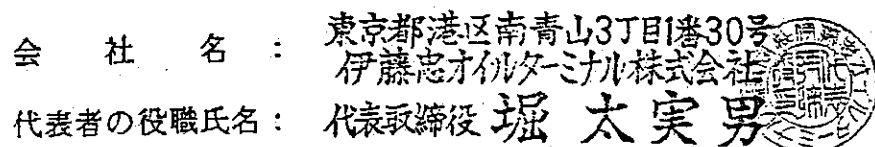 東京都港区南青山3丁目1番30号
会 社 名 : 伊藤忠オイルターミナル株式会社
代表者の役職氏名: 代表取締役 堀 太実男